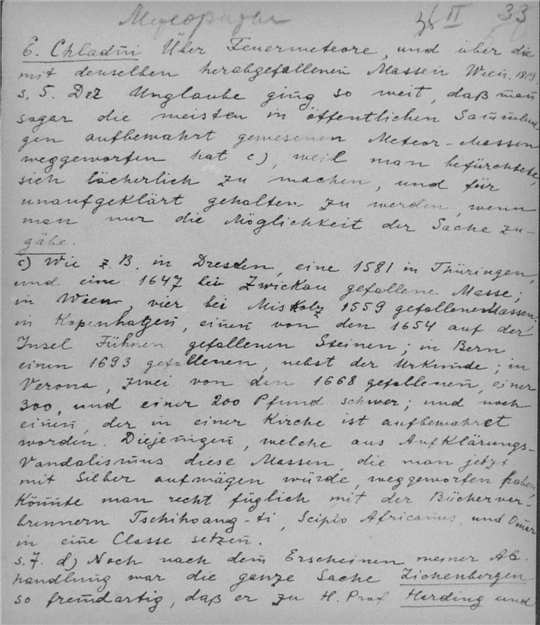 Мусорщики
II 33
E. Chladni Über Feuermeteore, und über die
mit denselben herabgefallenen Massen Wien. 1819
s. 5. Der Unglaube ging so weit, daß man
sogar die meisten in öffentlichen Sammlun
gen aufbewahrt gewesenen Meteor-Massen
weggeworfen hat c), weil man befürchtete,
sich lächerlich zu machen, und für
unaufgeklärt gehalten zu werden, wenn
man nur die Möglichkeit der Sache zu-
gäbe.
c) Wie z.B. in Dresden, eine 1581 in Thüringen,
und eine 1647 bei Zwickau gefallene Masse;
in Wien, vier bei Miskolz 1559 gefallene Massen;
in Kopenhagen, einen von den 1654 auf der
Insel Fühnen gefallenen Steinen; in Bern
einen 1693 gefallenen, nebst der Urkunde; in
Verona, zwei von den 1668 gefallenen, einer
300, und einer 200 Pfund schwer; und noch
einen, der in einer Kirche ist aufbewahret
worden. Diejenigen, welche aus Aufklärungs-
Vandalismus diese Massen, die man jetzt
mit Silber aufwägen würde, weggeworfen haben,
könnte man recht füglich mit der Bücherver-
brennern Tschihoang-ti, Scipio Africanus, und Omar
in eine Classe setzen.
s. 7. d) Noch nach dem Erscheinen meiner Ab-
handlung war die ganze Sache Lichenbergen
so fremdartig, daß er zu H. Prof Harding und